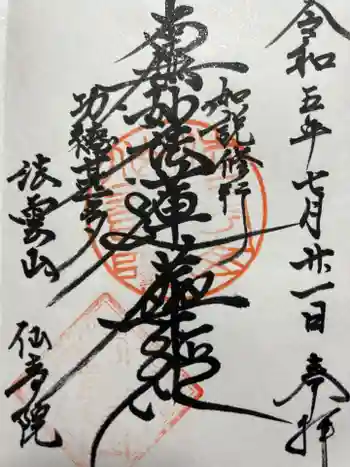 令和五年七月廿一日 奉拝
如説修行
南無妙法蓮華経
功徳甚多
法雲山 仙寿院